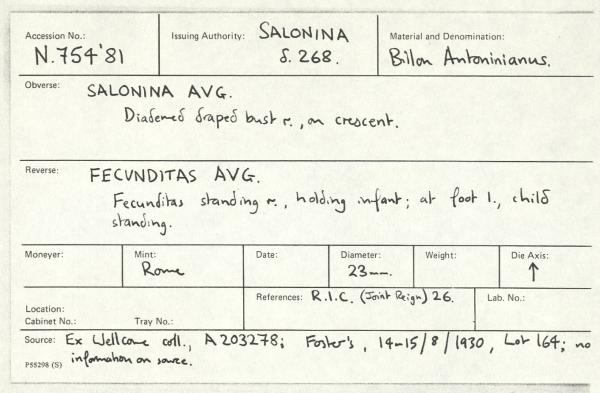 Accession No.: N.754'81
Issuing Authority: SALONINA
d. 268.
Material and Denomination: Billon Antoninianus.
Obverse: SALONINA AVG.
Diademed draped bust r., on crescent.
Reverse: FECVNDITAS AVG.
Fecunditas standing r., holding infant; at foot l., child
standing.
Moneyer:
Mint: Rome
Date:
Diameter: 23mm.
Weight:
Die Axis: ↑
Location:
Cabinet No.: Tray No.:
References: R.I.C. (Joint Reign) 26.
Lab. No.:
Source: Ex Wellcome coll., A203278; Foster's, 14-15/8/1930, Lot 164; no
information on source.
P55298 (S)